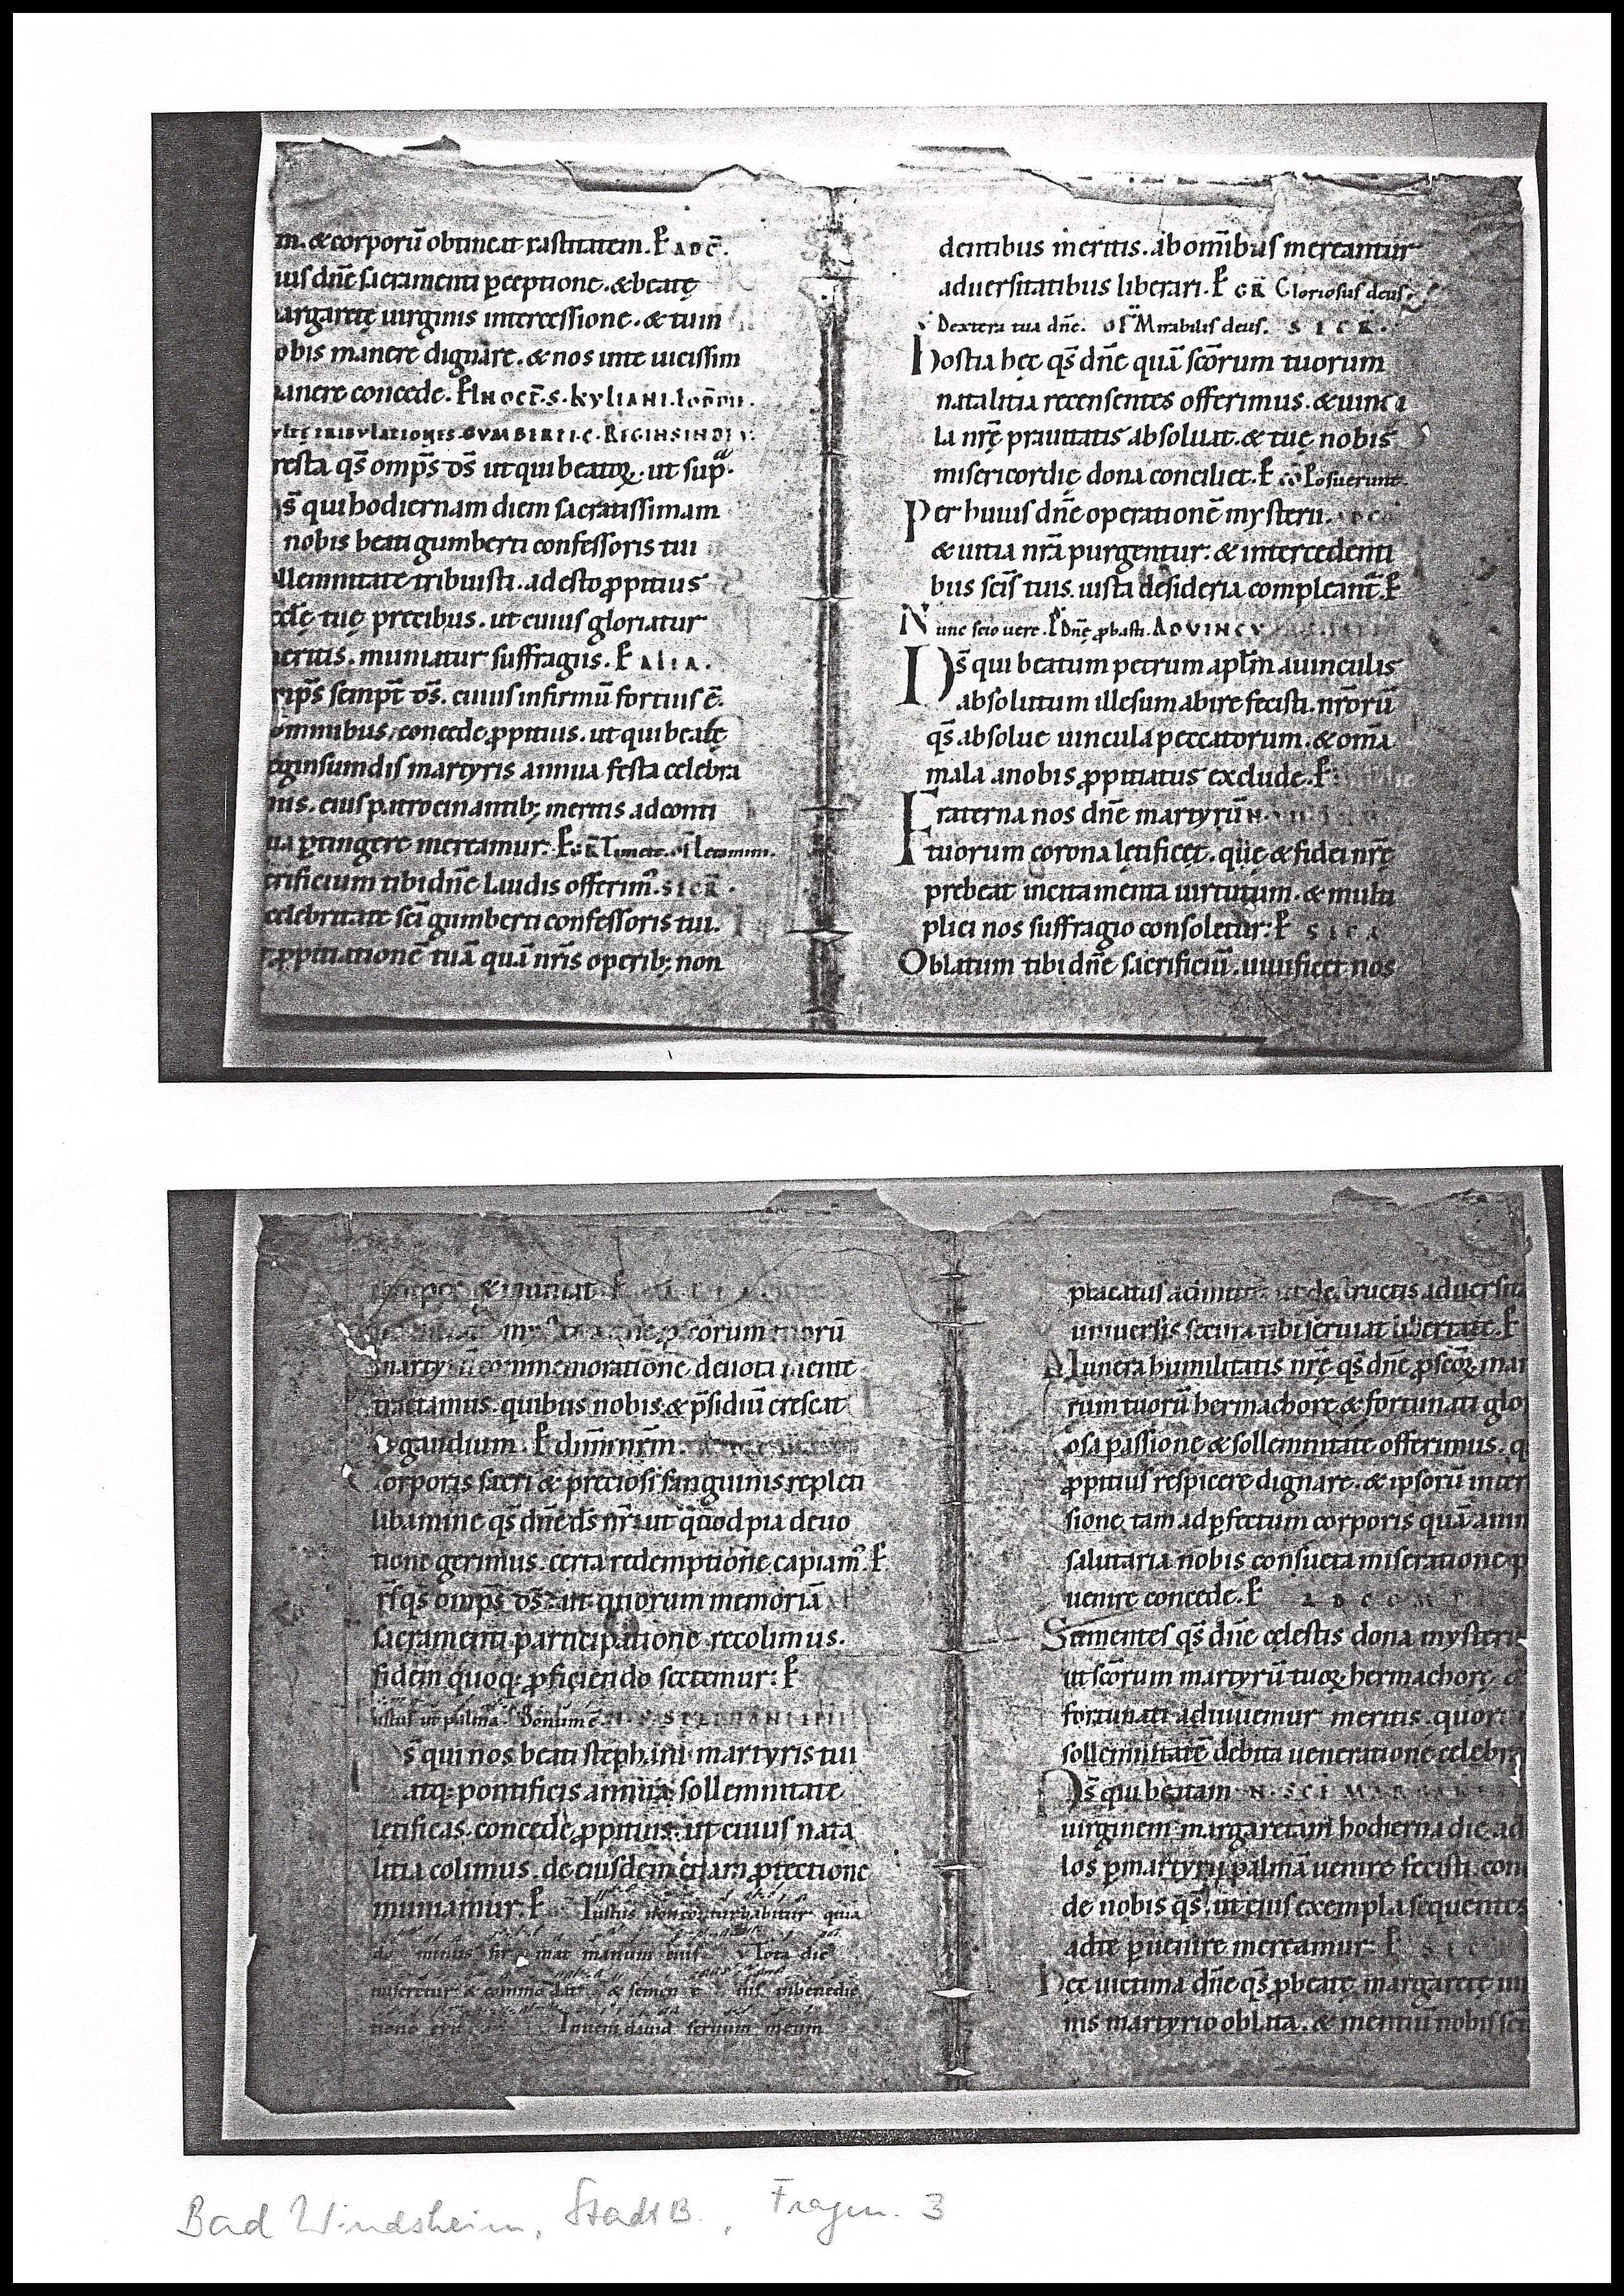 m. & corporũ obtineat castitatem. P AD C̄.
ius dñe sacramenti ꝑceptione. & beatę
argaretę uirginis intercessione. & tu in
obis manere dignare. & nos in te uicissim
anere concede. P IN OCT̄. S. KYLIANI.
TRIBVLATIONES. GVMBERTI. C. REGINSINDIS
resta qs̄ omp̄s ds̄ ut qui beatoꝝ. ut supᵃ.
s̄ qui hodiernam diem sacratissimam
nobis beati gumberti confessoris tui
llemnitate tribuisti. adesto ꝓpitius
cclę tuę precibus. ut cuius gloriatur
eritis. muniatur suffragiis. P ALIA.
nip̄s semp̄t ds̄. cuius infirmũ fortius ē.
omnibus, concede ꝓpitius. ut qui beatę
eginsuindis martyris annua festa celebra
mus. eius patrocinantib; meritis ad conti
ua ꝑtingere mereamur. P
crificium tibi dñe laudis offerim᾽. SECR̄.
celebritate scī gumberti confessoris tui.
ꝓpitiationē tuā quā nr̄is operib; non
dentibus meritis. ab omībus mereamur
aduersitatibus liberari. P GR̄ Gloriosus deus.
Dextera tua dñe. of Mirabilis deus. SECR̄.
Hostia hęc qs̄ dñe quā scōrum tuorum
natalitia recensentes offerimus. & uincu
la nrę prauitatis absoluat. & tuę nobis
misericordię dona conciliet. P cō Posuerunt.
Per huius dñe operationē mysterii. AD CO
& uitia nr̄a purgentur: & intercedenti
bus scīs tuis. iusta desideria compleant̄. P
Nunc scio uere. P Dñe ꝓbasti. AD VINCV
Ds̄ qui beatum petrum aplm̄ a uinculis
absolutum illesum abire fecisti. nr̄orũ
qs̄. absolue uincula peccatorum. & omā
mala a nobis ꝓpitiatus exclude. P
Fraterna nos dñe martyrũ
tuorum corona lętificet. qūę & fidei nrę
prebeat incitamenta uirtutum. & multi
plici nos suffragio consoletur: P SECR
Oblatum tibi dñe sacrificiũ. uiuificet nos
semper & muniat. P
mysteria dñe ꝓ scorum tuorũ
martyrũ commemoratione deuota mente
tractamus. quibus nobis & p̄sidiũ crescat
& gaudium. P dñm nr̄m.
Corporis sacri & preciosi sanguinis repleti
libamine qs̄ dñe ds̄ nr̄. ut quod pia deuo
tione gerimus. certa redemptione capiam᾽. P
qs̄ omp̄s ds̄. ut quorum memoriā
sacramenti participatione recolimus.
fidem quoq; ꝓficiendo sectemur: P
Iustus ut palma. Bonum ē. STEPHANI
s̄ qui nos beati stephani martyris tui
atq; pontificis annua sollemnitate
lętificas. concede ꝓpitius. ut cuius nata
litia colimus. de eiusdem etiam ꝓtectione
muniamur: P Iustus non conturbabitur quia
do minus fir mat manum eius. V Tota die
miseretur & commodat & semen e ius in benedic
tione erit Inueni dauid seruum meum
placatus acimus ut destructis aduersita
uniuersis secura tibi seruiat libertate. P
Munera humilitatis nrę qs̄ dñe ꝓ scoꝝ mar
rum tuorũ hermachorę & fortunati glo
osa passione & sollemnitate offerimus. q
ꝓpitius respicere dignare. & ipsorũ inter
sione, tam ad ꝓfectum corporis quā anim
salutaria nobis consueta miseratione p
uenire concede. P AD COM
Sumentes qs̄ dñe cęlestis dona mysterii
ut scōrum martyrũ tuoꝝ hermachorę &
fortunati adiuuemur meritis. quorũ
sollemnitatē debita ueneratione celebra
Ds̄ qui beatam N. SCĒ MARGAR
uirginem margaretam hodierna die ad
los ꝑ martyrii palmā uenire fecisti. con
de nobis qs̄. ut eius exempla sequentes
ad te ꝑuenire mereamur. P SEC
Hęc uictima dñe qs̄ ꝓ beatę margaretę uir
nis martyrio oblata. & mentiũ nobis scī
Bad Windsheim, StadtB., Fragm. 3